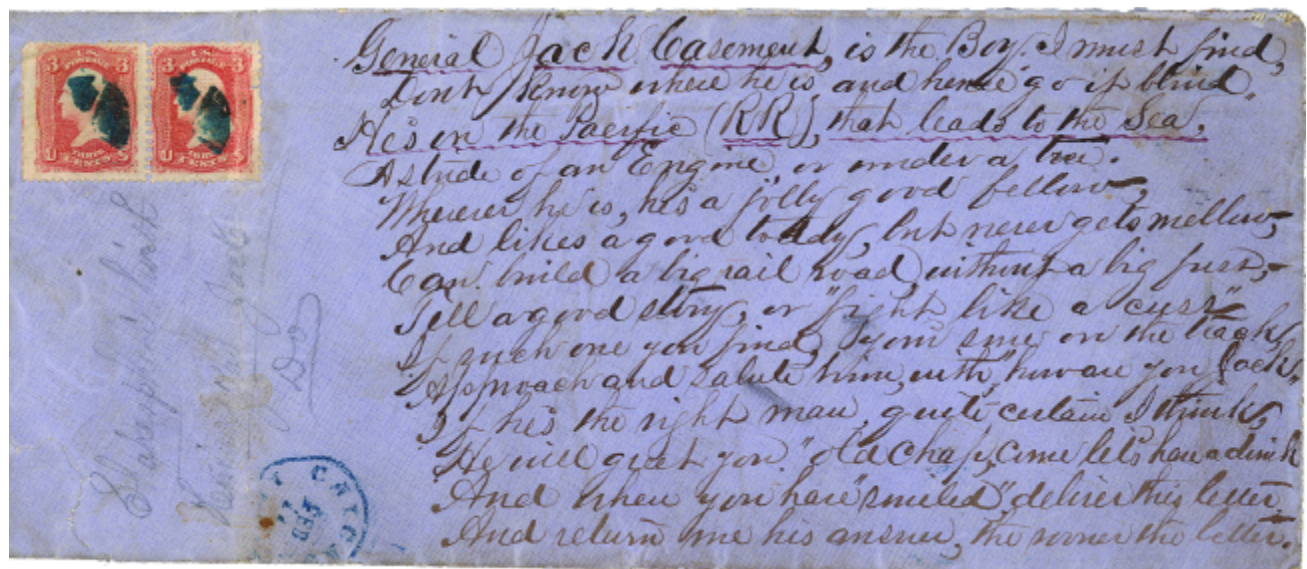 General Jack Casement, is the Boy I must find,
Dont Know where he is and hence go it blind.
He's on the Pacific (RR), that leads to the Sea,
Astride of an Engine, or under a tree.
Wherever he is, he's a jolly good fellow,
And likes a good toddy, but never gets mellow,
Can build a big rail road, without a big fuss,
Tell a good story, or "fight like a cuss"
If such one you find, your sure on the track,
Approach and salute him, with, "how are you Jack".
If he's the right man, quite certain I think,
He will greet you. "old chap, come let's have a drink
And when you have "smiled" deliver this letter
And return me his answer, the sooner the better.
U.S. POSTAGE
3 3
U THREE CENTS S
U.S. POSTAGE
3 3
U THREE CENTS S
Do
CHICAGO
FEB